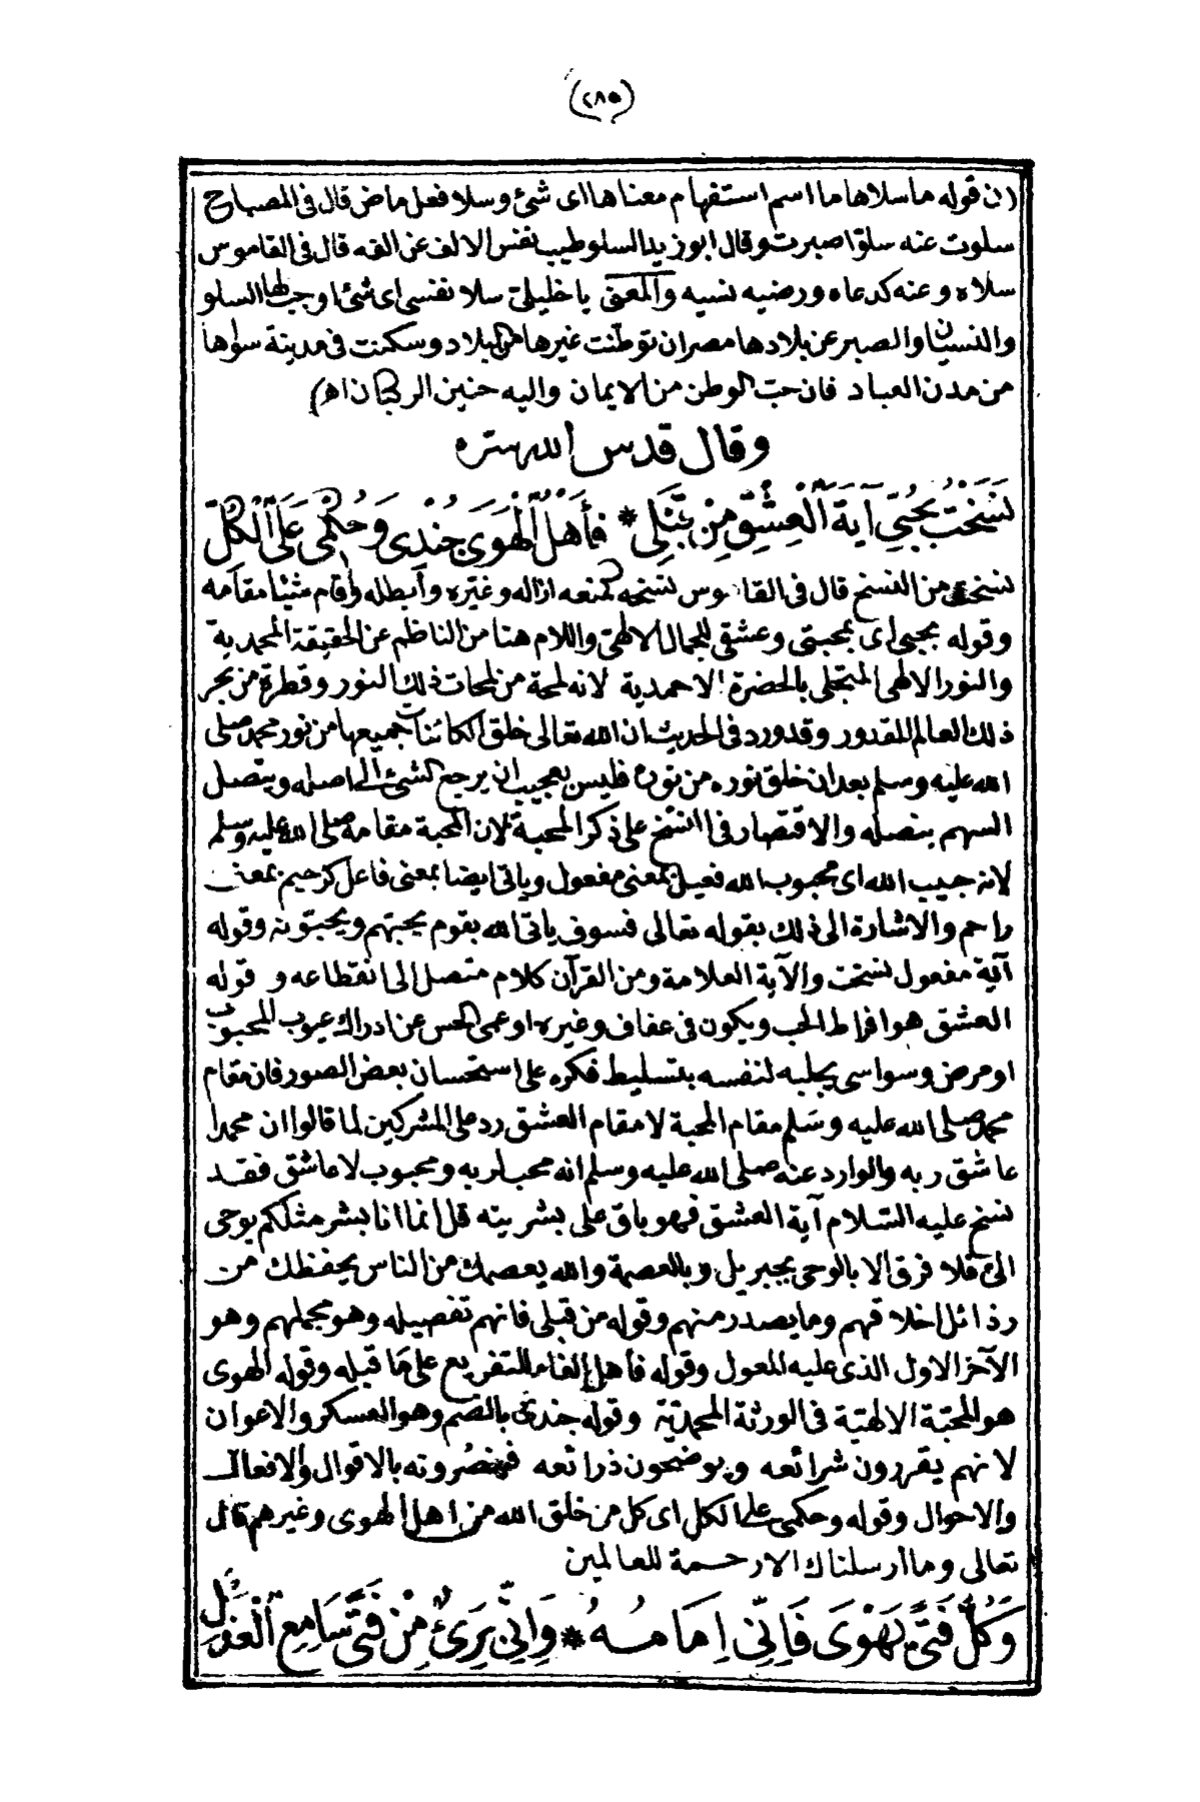 (٢٨٥)
ان قوله ما سلاها ما اسم استفهام معناها اى شئ وسلا فعل ماض قال فى المصباح
سلوت عنه سلوا صبرت وقال ابو زيد السلو طيب نفس الالف عن الفه قال فى القاموس
سلاه وعنه كدعاه ورضيه نسيه والمعنى يا خليلىّ سلا نفسى اى شئ اوجب لها السلو
والنسيان والصبر عن بلادها مصر ان توطنت غيرها من البلاد وسكنت فى مدينة سواها
من مدن العباد فان حبّ الوطن من الايمان واليه حنين الركبان اهـ)
وقال قدس الله سره
نَسَخْتُ بِحُبّى آيَةَ الْعِشْقِ مِنْ قَبْلِى * فَأَهْلُ الْهَوَى جُنْدِى وَحُكْمِى عَلَى الْكُلّ
نسخت من النسخ قال فى القاموس نسخه كمنعه ازاله وغيّره وأبطله وأقام شيئا مقامه
وقوله بحبى اى بمحبتى وعشقى للجمال الالهىّ واللام هنا من الناظم عن الحقيقة المحمدية
والنور الالهى المتجلى بالحضرة الاحمدية لانه لمحة من لمحات ذلك النور وقطرة من بحر
ذلك العالم المقدور وقد ورد فى الحديث ان الله تعالى خلق الكائنات جميعها من نور محمد صلى
الله عليه وسلم بعد ان خلق نوره من نوره فليس بعجيب ان يرجع الشئ الى اصله ويتصل
السهم بنصله والاقتصار فى النسخ على ذكر المحبة لان المحبة مقامه صلى الله عليه وسلم
لانه حبيب الله اى محبوب الله فعيل بمعنى مفعول وياتى ايضا بمعنى فاعل كرحيم بمعنى
راحم والاشارة الى ذلك بقوله تعالى فسوف ياتى الله بقوم يحبهم ويحبونه وقوله
آية مفعول نسخت والآية العلامة ومن القرآن كلام متصل الى انقطاعه و قوله
العشق هو افراط الحب ويكون فى عفاف وغيره او عمى الحس عن ادراك عيوب المحبوب
او مرض وسواسى يجلبه لنفسه بتسليط فكره على استحسان بعض الصور فان مقام
محمد صلى الله عليه وسلم مقام المحبة لا مقام العشق رد على المشركين لما قالوا ان محمدا
عاشق ربه والوارد عنه صلى الله عليه وسلم انه محب لربه ومحبوب لا عاشق فقد
نسخ عليه السلام آية العشق فهو باق على بشريته قل انما انا بشر مثلكم يوحى
الىّ فلا فرق الا بالوحى بجبريل وبالعصمة والله يعصمك من الناس يحفظك من
رذائل اخلاقهم وما يصدر منهم وقوله من قبلى فانهم تفصيله وهو مجملهم وهو
الآخر الاول الذى عليه المعول وقوله فأهل الفاء للتفريع على ما قبله وقوله الهوى
هو المحبّة الالهيّة فى الورثة المحمديّة وقوله جندى بالضم وهو العسكر والاعوان
لانهم يقررون شرائعه ويوضحون ذرائعه فينصُرونه بالاقوال والافعال
والاحوال وقوله وحكمى على الكل اى كل من خلق الله من اهل الهوى وغيرهم قال
تعالى وما أرسلناك الا رحمة للعالمين
وَكُلُّ فَتىً يَهْوَى فَاِنّى اِمَامُهُ * وَاِنّى بَرِئٌ مِنْ فَتىً سَامِعِ الْعَذْلِ